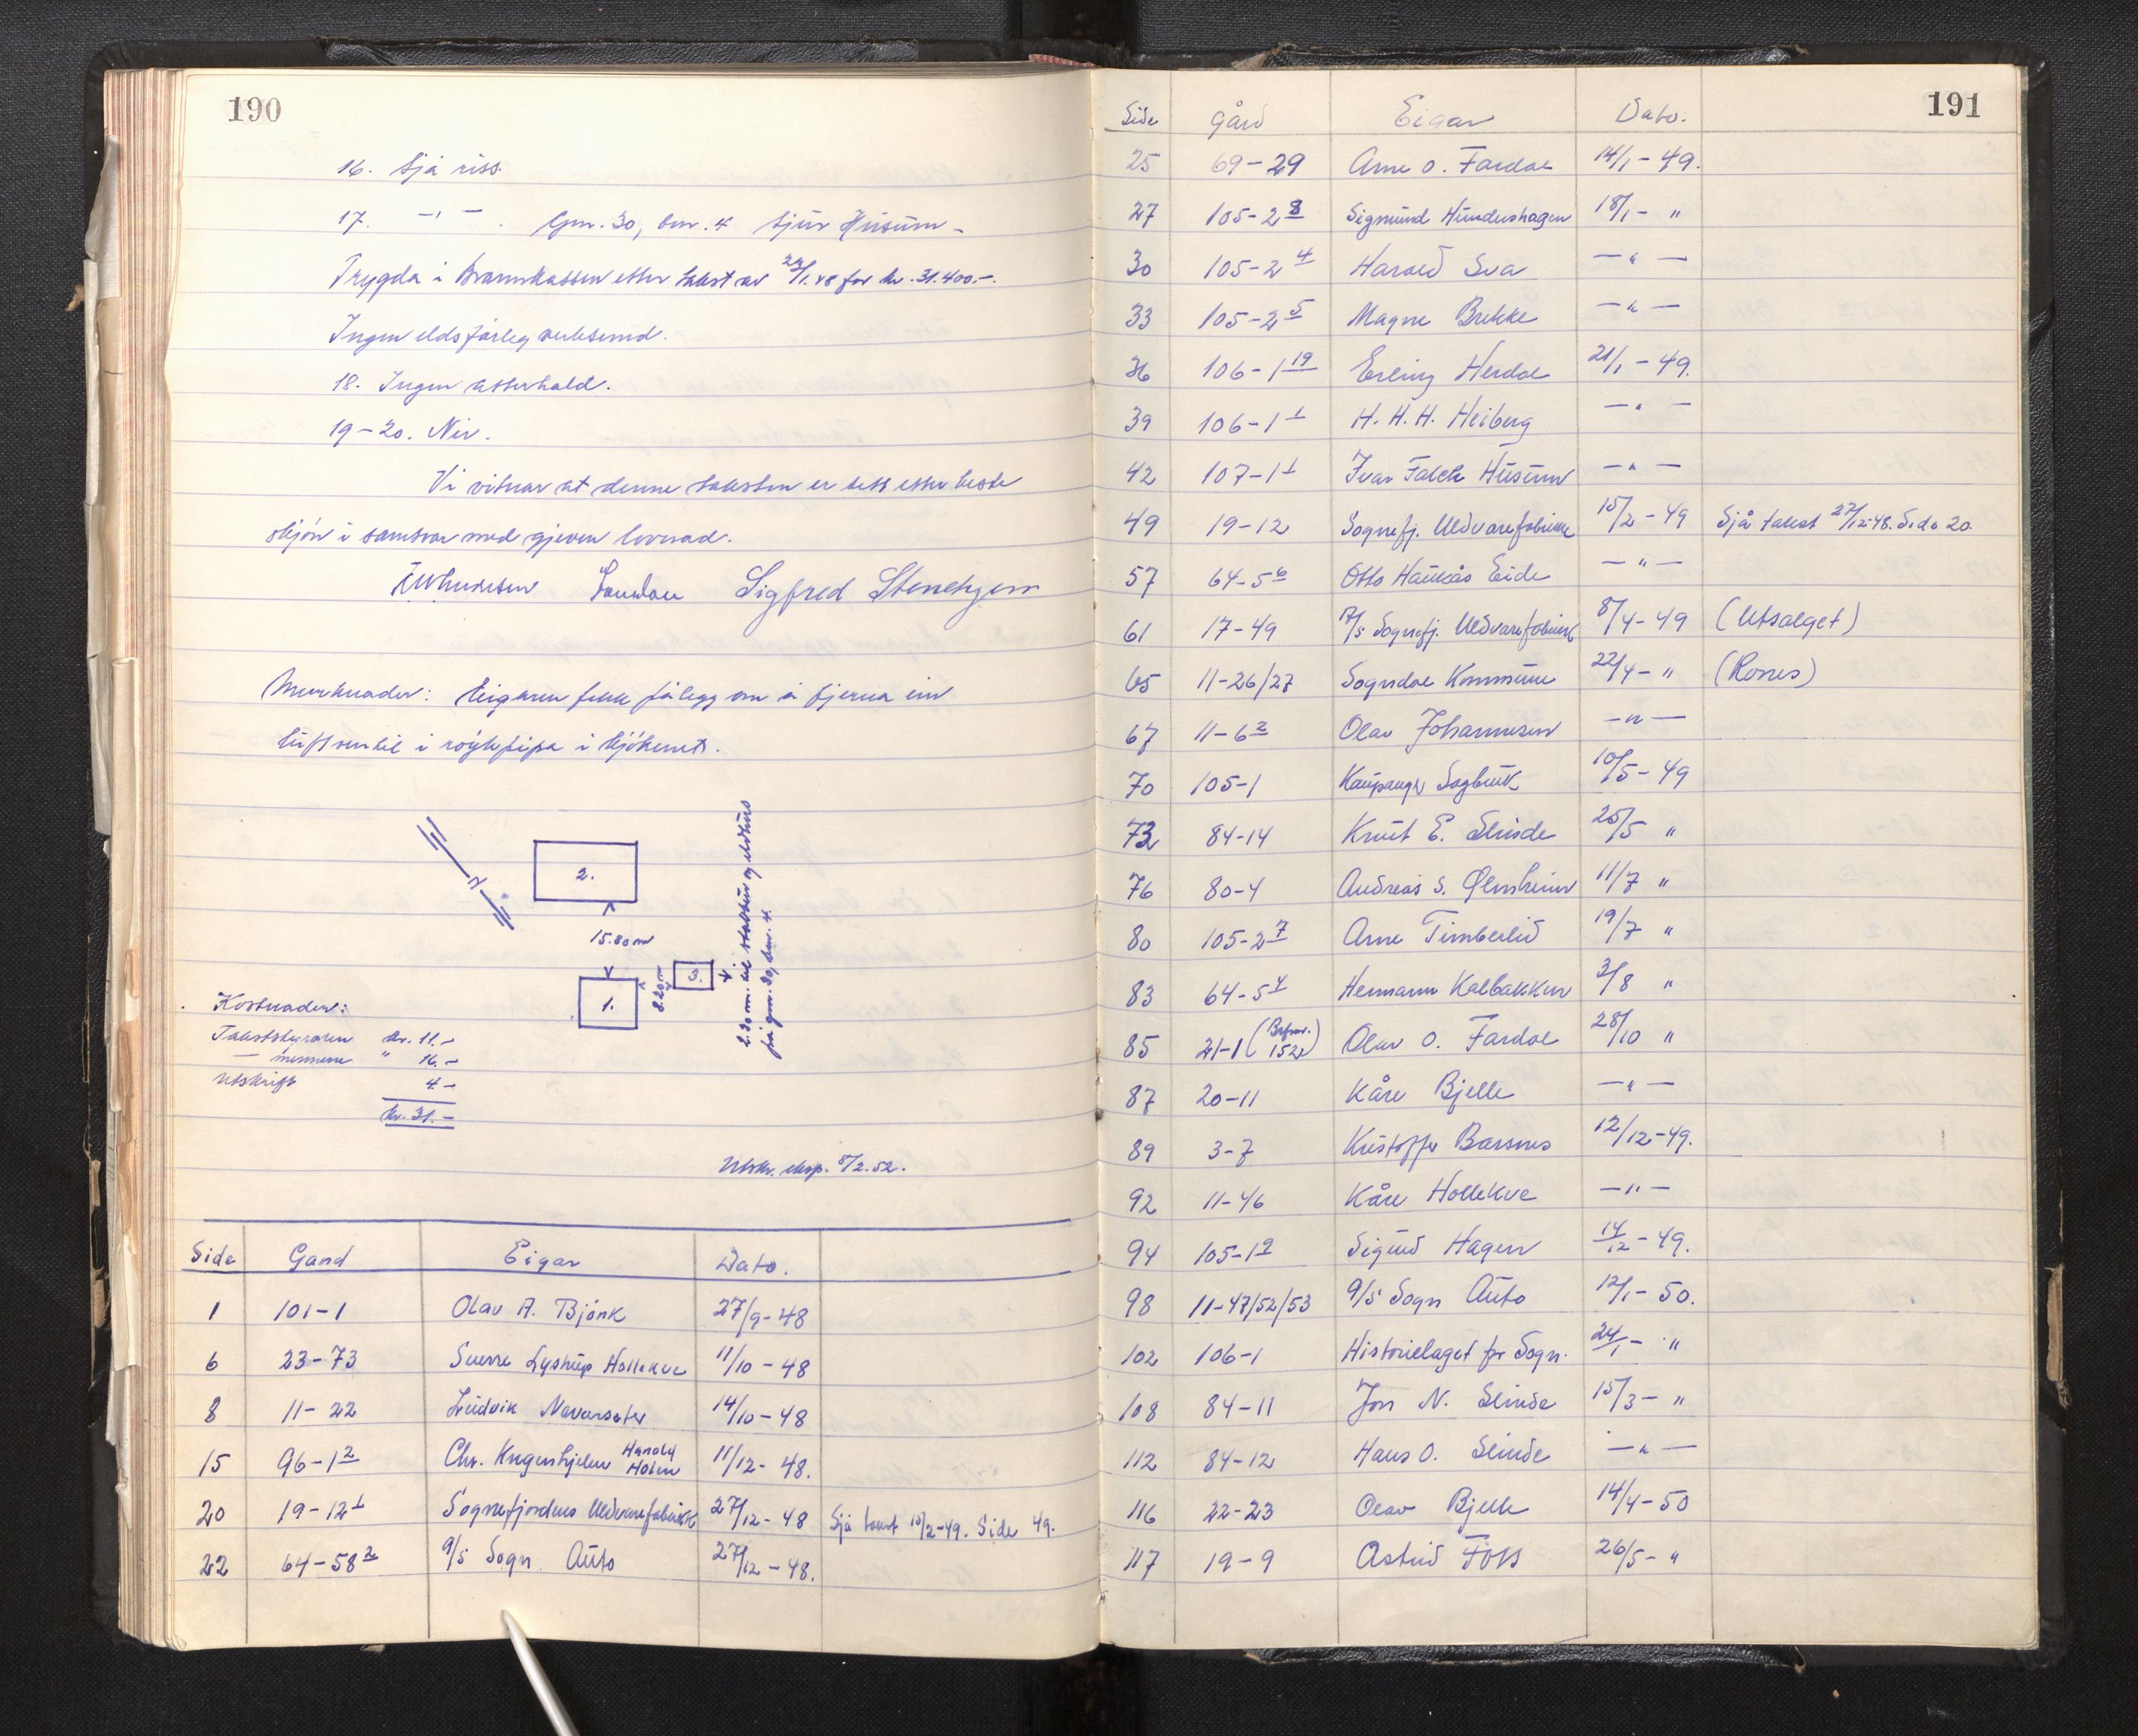 190
16. Sjå riss.
17. —"— . Gnr. 30, bnr. 4 Sjur Husum –
Trygda i Brannkassen etter takst av 22/1.48 for kr. 31.400.–.
Ingen eldsfårleg verksemd.
18. Ingen atterhald.
19–20. Nei.
Vi vitnar at denne taksten er sett etter beste
skjøn i samsvar med gjeven lovnad.
Sigfred Stenehjem
Merknader: Eigaren fekk pålegg om å fjerna ein
luftventil i røykpipa i kjøkenet.
2.
15.80 m
1.
8.20 m
3.
2.30 m. til stabbur og eldhus
på gnr. 30, bnr. 4.
Kostnader:
Takststyraren kr. 11.–
— mennene " 16.–
Utskrift 4.–
kr. 31.–
Utskr. eksp. 8/2.52.
Side Gard Eigar Dato.
1 101–1 Olav A. Bjørk 27/9–48
6 23–73 Sverre Lystrup Hollekve 11/10–48
8 11–22 Ludvik Navarseter 14/10–48
15 96–1² Chr. Knagenhjelm Harald Holen 11/12–48.
20 19–12¹ Sognefjordens Uldvarefabrikk 27/12–48 Sjå takst 15/2–49. Side 49.
22 64–58² A/S Sogn Auto 27/12–48.
191
Side Gård Eigar Dato.
25 69–29 Arne O. Fardal 14/1–49.
27 105–2 8 Sigmund Hundershagen 18/1– "
30 105–2 4 Harald Sva —"—
33 105–2 5 Magne Brekke —"—
36 106–1 19 Erling Herdal 21/1–49.
39 106–1 1 H. H. H. Heiberg —"—
42 107–1 1 Ivar Falck Husum —"—
49 19–12 Sognefj. Uldvarefabrikk 15/2–49 Sjå takst 27/12-48. Side 20.
57 64–5 6 Otto Haukås Eide —"—
61 17–49 A/S Sognefj. Uldvarefabrikk 8/4–49 (Utsalget)
65 11–26/27 Sogndal Kommune 22/4– " (Rones)
67 11–6 2 Olav Johannesen —"—
70 105–1 Kaupanger Sagbruk 10/5–49
73 84–14 Knut E. Slinde 25/5 "
76 80–4 Andreas S. Ølmheim 11/7 "
80 105–2 7 Arne Timberlid 19/7 "
83 64–5 4 Hermann Kalbakken 3/8 "
85 21–1 (Brfnr. 152) Olav O. Fardal 28/10 "
87 20–11 Kåre Bjelle —"—
89 3–7 Kristoffer Barsnes 12/12–49.
92 11–46 Kåre Hollekve —"—
94 105–1 9 Sigurd Hagen 14/12–49.
98 11–47/52/53 A/S Sogn Auto 12/1–50.
102 106–1 Historielaget for Sogn. 24/1– "
108 84–11 Jon N. Slinde 15/3– "
112 84–12 Hans O. Slinde —"—
116 22–23 Olav Bjelle 14/4–50
117 19–9 Astrid Foss 26/5– "